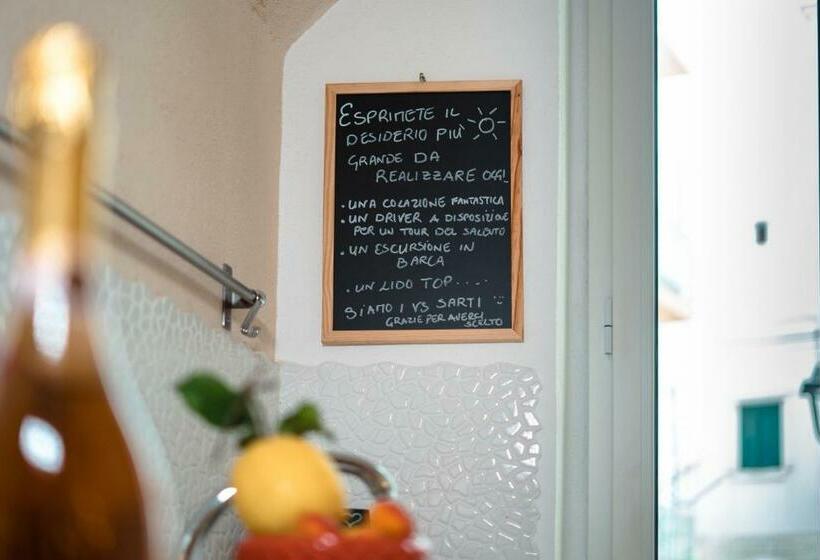 ESPRIMETE IL
DESIDERIO PIÙ
GRANDE DA
REALIZZARE OGGI!
• UNA COLAZIONE FANTASTICA
• UN DRIVER A DISPOSIZIONE
PER UN TOUR DEL SALENTO
• UN ESCURSIONE IN
BARCA
• UN LIDO TOP.....
SIAMO I VS SARTI
GRAZIE PER AVERCI
SCELTO